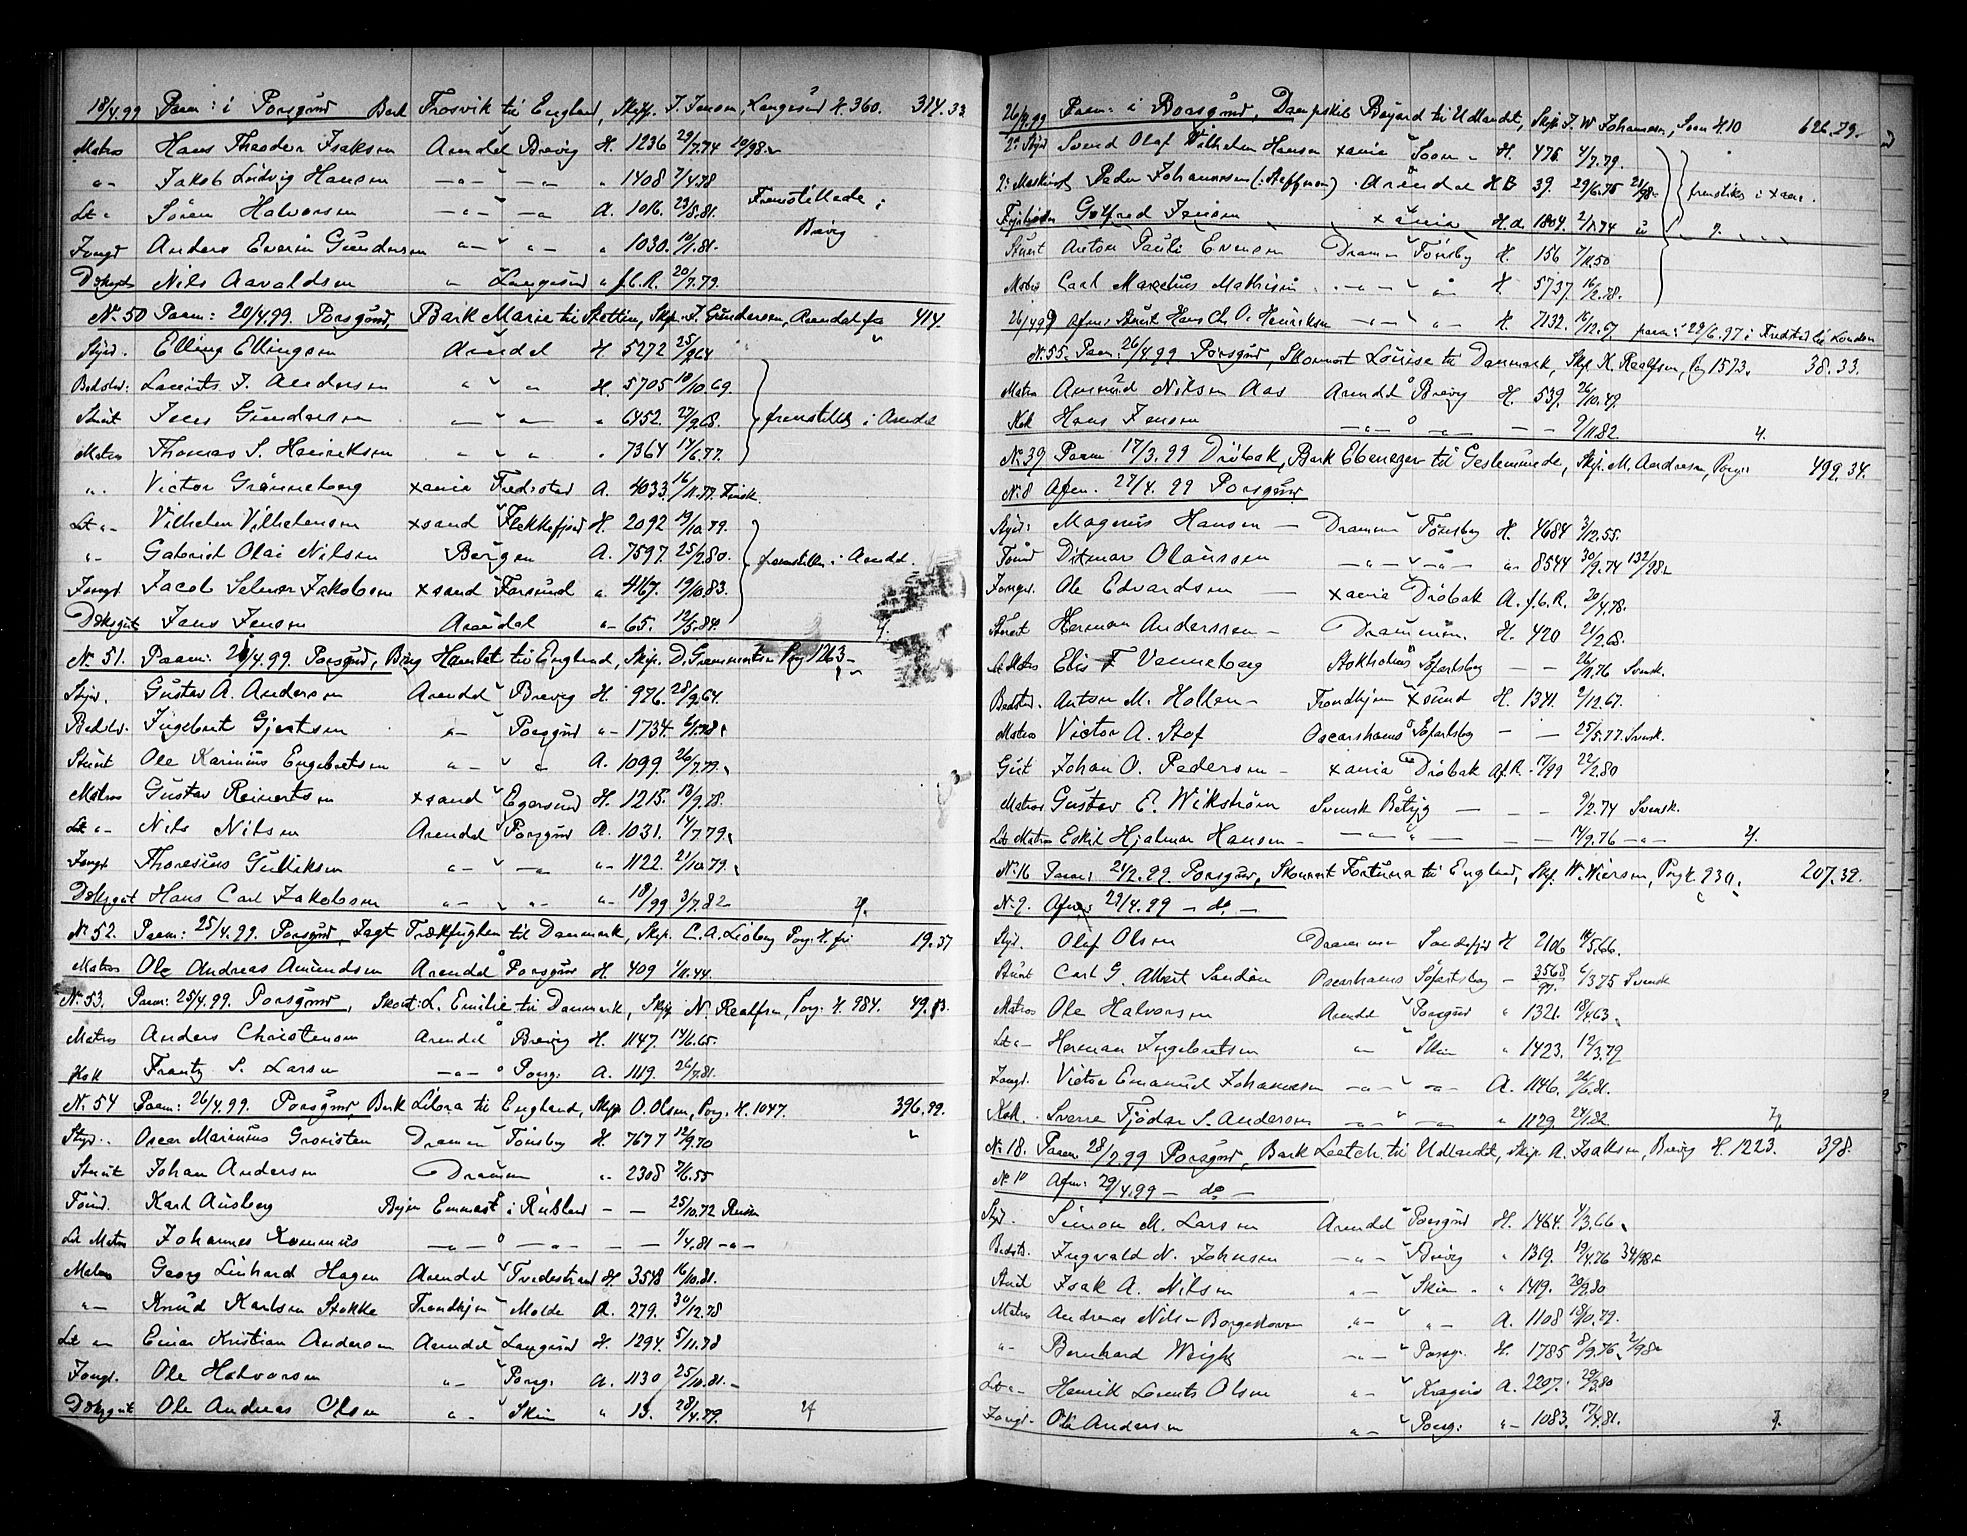 18/4.99 Paam: i Porsgrund Bark Frosvik til England, Skipp. J. Jensen, Langesund H. 360. 314.33
Matros Hans Theodor Isaksen Arendal Brevig H. 1236 29/7.74
"- Jakob Ludvig Hansen —"— " —"— " 1408 7/4.78
Lt " Søren Halvorsen —"— " —"— A. 1016. 23/8.81. Fremstillede i
Jungd Anders Everin Gundersen "— " "— " 1030. 10/1.81. Brevig
Dæksgut Nils Aavaldsen " Langesund " f.C.R. 20/7.79.
No. 50 Paam: 20/4.99. Porsgrund, Bark Marie til Stettin, Skip. J. Gundersen, Arendal 414.
Styrd. Elling Ellingsen Arendal H. 5272 25/9.64
Bedstvd: Laurits J. Andersen " " " H. 5705 18/10.69.
Stuert Jens Gundersen " " " " 6452. 27/9.68. fremstilles i Arendal
Matros Thomas S. Henriksen " " " " 7364 14/6.77.
" . Victor Grønneberg xania Fredrstad A. 4033. 16/11.77. Finsk
Lt "- Vilhelm Vilhelmsen xsand Flekkefjord H. 2092 19/10.79.
"- Gabriel Olai Nilsen Bergen A. 7597. 25/2.80. fremstilles i Arendal
Jungd. Jacob Selmer Jakobsen xsand Farsund " 467. 19/10.83.
Dæksgut Jens Jensen Arendal "- 65. 12/5.84. 4.
No. 51. Paam: 20/4.99. Porsgrund, Brig Hamlet til England, Skip. D. Gremmertsen Porsg 1263-
Styrd. Gustav A. Andersen Arendal Brevig H. 976. 28/9.64.
Bedstvd. Ingebret Gjertsen "- Porsgrund "- 1734. 6/1.78.
Stuert Ole Karinius Engebretsen "- " " A. 1099. 26/7.79.
Matros Gustav Reinertsen xsand Egersund H. 1215. 13/9.78.
Lt "- Nils Nilsen Arendal Porsgrund A. 1031. 14/7.79.
Jungd Thoresius Gulliksen "- " —"— "- 1122. 21/10.79.
Dæksgut Hans Carl Jakobsen "- " "- "- 18/99 3/7.82 4.
No. 52. Paam: 25/4.99. Porsgrund, Jagt Trækfuglen til Danmark, Skip. C. A. Lidberg Porsg. H. fri 19.37
Matros Ole Andreas Amundsen Arendal Porsgrund H. 409 1/11.44.
No. 53. Paam: 25/4.99. Porsgrund, Skont: L. Emilie til Danmark, Skip N. Realfsen, Porsg. H. 984. 49.83.
Matros Anders Christensen Arendal Brevig H. 1147. 14/6.65.
Kok Frantz S. Larsen —"— Porsg. A. 1119. 26/7.81.
No. 54 Paam: 26/4.99. Porsgrund, Bark Libra til England, Skipp. O. Olsen, Porsg. H. 1047. 396.99.
Styrd.. Oscar Marinius Gronsten Drammen Tønsberg H. 7677 12/9.70
Stuert Johan Andersen Drammen " 2308 7/6.55
Tømd. Karl Ausberg Byen Emmast i Rusland — — 25/10.72 Russer
Lt Matros Johannes Rommus —"— " —"— — — 1/4.81 —"—
Matros Georg Linhard Hagen Arendal Tvedestrand H. 3548 16/10.81.
"- Knud Karlsen Stokke Trondhjem Molde A. 279. 30/12.78
Lt "- Einar Kristian Andersen Arendal Langesund H. 1294. 5/11.78
Jungd. Ole Halvorsen "- Porsg. A. 1130 25/10.81.
Dæksgut Ole Andreas Olsen "- Skien " 13. 28/4.79. 4
26/4.99 Paam: i Porsgrund, Dampskib Bayard til Udlandet, Skip. J. W. Johannesen, Soon H. 10 626.79.
2n Styrd Svend Olaf Vilhelm Hansen xania Soon - H. 475 4/7.79.
2n Maskinist Peder Johannesen (Steffensen) Arendal H B 39. 29/6.75 fremstilles i xania.
Fyrbøder Gotfred Jensen xania H.a. 1804. 2/11.74
Stuert Anton Pauli Evensen Drammen Tønsberg H. 156 7/11.50
Matros Carl Marelius Mathisen —"— " " H. 5737. 16/2.78.
26/4.99 Afm: Stuert Hans Chr. O. Henriksen —"— " "— H. 7132. 16/12.67. paam: 29/6.97 i Fredstad til London
No. 55. Paam: 26/4.99 Porsgrund, Skonnert Louise til Danmark, Skip. K. Realfsen, Porsg 1573. 38.33.
Matros Amund Nilsen Aas Arendal Brevig H. 539. 26/10.49.
Kok Hans Jensen —"— " —"— — — 9/11.82. 4.
No. 39 Paam 17/3.99 Drøbak, Bark Ebenezer til Gestemünde, Skip. M. Andresen, Porsgr. 499.34.
No. 8 Afm. 27/4.99 Porsgrund
Styrd: Magnus Hansen — Drammen Tønsberg H. 4684 3/12.55.
Tømd Ditmar Olaussen —"— " —"— " 8544 30/9.74 132/98
Jungd. Ole Edvardsen — xania Drøbak A. f.C.R. 20/4.78.
Stuert Herman Anderssen — Drammen. H. 420 21/2.68.
Lt Matros Elis F Venneberg Stokholms Søfartsbog — — 26/11.76 Svensk.
Bedstvd. Anton M. Holten — Trondhjem xsund H. 1371. 9/12.67.
Matros Victor A. Stof Oscarshams Søfartsbog — — 25/5.77. Svensk.
Gut Johan O. Pedersen — xania Drøbak Af.R. 17/99 22/2.80
Matros Gustav E. Wikstrøm Svensk Betyg — — 9/2.74 Svensk.
Lt Matros Eskil Hjalmar Hansen — —"— " — — 14/9.76 —"— 4.
No. 16 Paam: 24/2.99. Porsgrund, Skonnert Fortuna til England, Skip. W. Wiersen, Porsg H. 930. 207.39.
No. 9. Afm: 29/4.99 — do. —
Styrd. Olaf Olsen Drammen Sandefjord H 2106 14/5.66.
Stuert Carl G. Albert Sandin Oscarshams Søfartsbog — 3568/97. 6/3.75 Svensk
Matros Ole Halvorsen Arendal Porsgrund " 1321. 18/4.63.
Lt "- Herman Ingebretsen "- Skien " 1423. 12/3.79
Jungd. Victor Emanuel Johannesen —"— " —"— A. 1146. 26/6.81.
Kok. Sverre Fjodar S. Andersen —"— " —"— " 1129. 24/1.82. 4
No. 18. Paam 28/2.99 Porsgrund, Bark Leetch til Udlandet, Skip. A. Isaksen, Brevig H. 1223. 398.
No. 10 Afm: 29/4.99 — do —
Styrd. Simon M. Larsen Arendal Porsgrund H. 1464. 4/3.66.
Bedstv. Ingvald N. Johnsen —"— Brevig " 1319. 19/4.76 34/98
Stuert Isak A. Nilsen "- Skien " 1419. 20/2.80
Matros Andreas Nilsen Borgestrøm "- " "- A. 1108 18/10.79.
"- Bernhard Wright —"— Porsgr. H. 1785 8/9.76.
Lt "- Henrik Lorents Olsen "- Kragerø A. 2207. 29/3.80
Jungd. Ole Andersen "- Porsg: "- 1083. 17/4.81. 4.